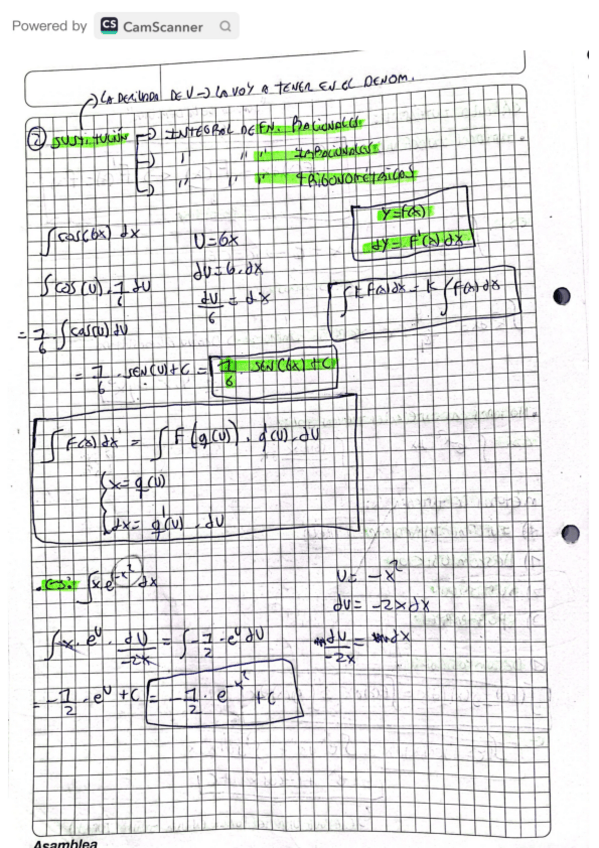 Powered by CS CamScanner
→ LA DERIVADA DE U → LA VOY A TENER EN EL DENOM.
② SUSTITUCIÓN → INTEGRAL DE FN. RACIONALES
→ " " " IRRACIONALES
→ " " " TRIGONOMÉTRICAS
y = f(x)
dy = f'(x).dx
∫cos(6x) dx
U = 6x
∫cos(u).1/6 du
du = 6.dx
du/6 = dx
∫k f(x) dx = k ∫f(x) dx
= 1/6 . ∫cos(u) du
= 1/6 . SEN(u)+C = 1/6 . SEN(6x)+C
∫F(x) dx = ∫F(g(u)).g'(u).du
{ x = g(u)
dx = g'(u).du
.Ej: ∫x.e^(-x²) dx
U = -x²
du = -2xdx
∫x.e^u . du/-2x = ∫-1/2 . e^u du
du/-2x = dx
= -1/2 . e^u + C = -1/2 . e^-x² + C
Asamblea